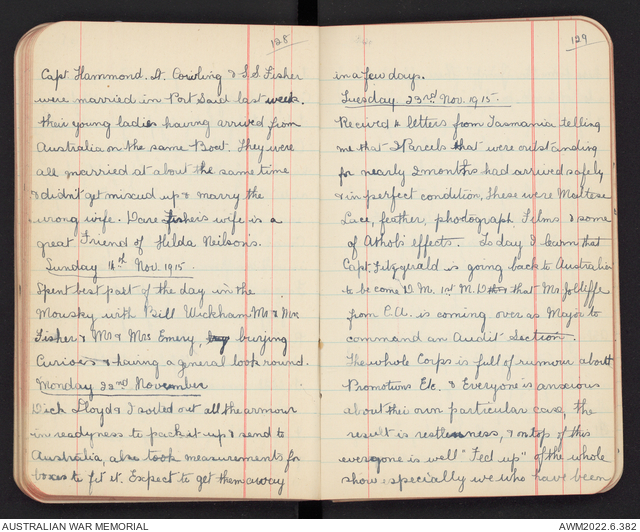 128
Capt. Hammond. Lt. Cowling & S.S. Fisher
were married in Port Said last week.
their young ladies having arrived from
Australia on the same Boat. They were
all married at about the same time
& didn't get miscued up & marry the
wrong wife. Dave Fisher's wife is a
great Friend of Hilda Neilson's.
Sunday Nov. 1915.
Spent best part of the day in the
Mousky with Bill Wickham Mr & Mrs
Fisher & Mr & Mrs Emery, buying
Curios & having a general look round.
Monday 22nd November
Dick Lloyd & I sorted out all the armour
in readyness to pack it up & send to
Australia, also took measurements for
boxes to fit it. Expect to get them away
129
in a few days.
Tuesday 23rd Nov. 1915.
Received letters from Tasmania telling
me that Parcels that were outstanding
for nearly 2 months had arrived safely
& in perfect condition, these were Maltese
Lace, feather, photograph Films & some
of Athol's effects. To day I learn that
Capt. Fitzgerald is going back to Australia
to be come D.M. 1st M.D & that Mr Jolliffe
from C.A. is coming over as Major to
command an Audit Section.
The whole Corps is full of rumour about
Promotions Etc. & Everyone is anxious
about their own particular case, the
result is restlessness, & on top of this
everyone is well "Fed up" of the whole
show especially we who have been
AUSTRALIAN WAR MEMORIAL
AWM2022.6.382